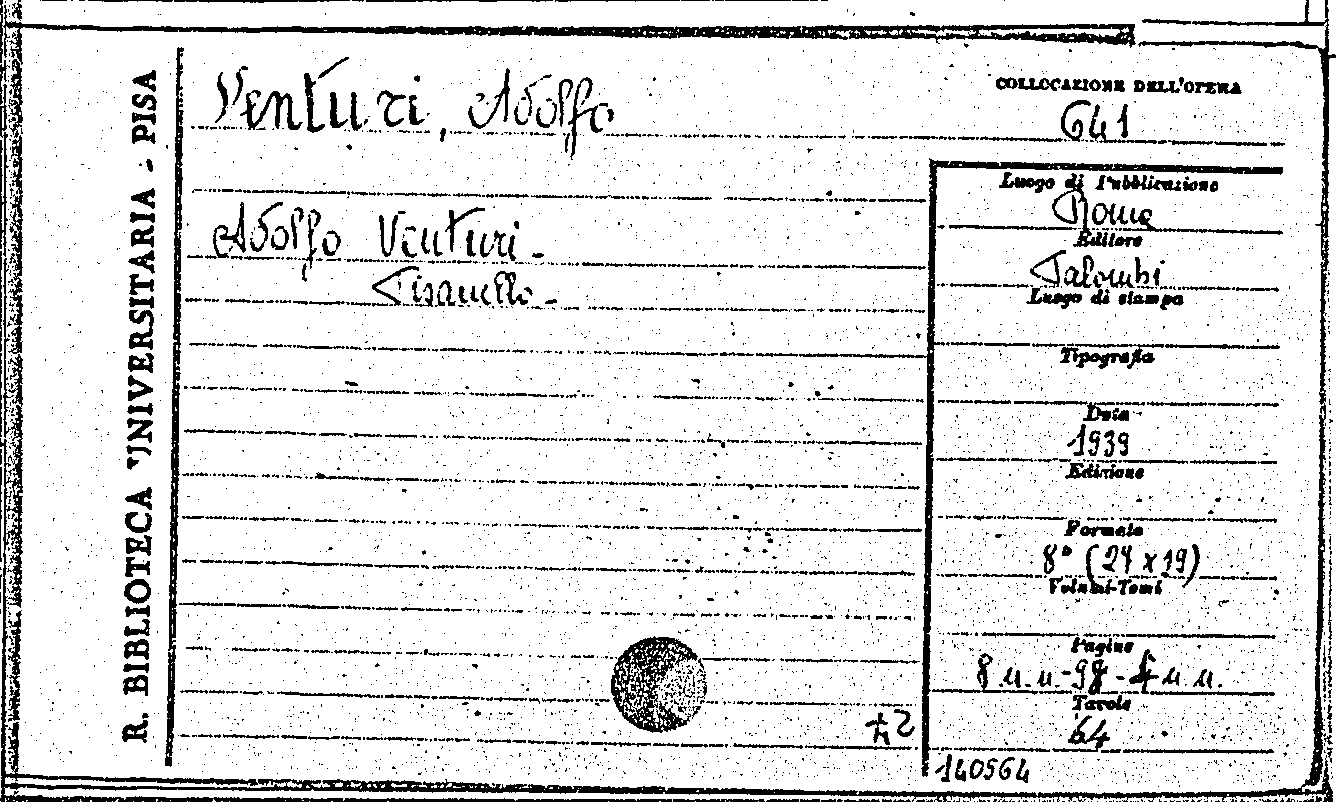 R. BIBLIOTECA UNIVERSITARIA - PISA
Venturi, Adolfo
COLLOCAZIONE DELL'OPERA
G41
Adolfo Venturi -
Pisanello -
Luogo di Pubblicazione
Roma
Editore
Palombi
Luogo di stampa
Tipografia
Data
1939
Edizione
Formato
8° (24 x 19)
Volumi-Tomi
Pagine
8 n.n-98-4 n n.
Tavole
64
140564